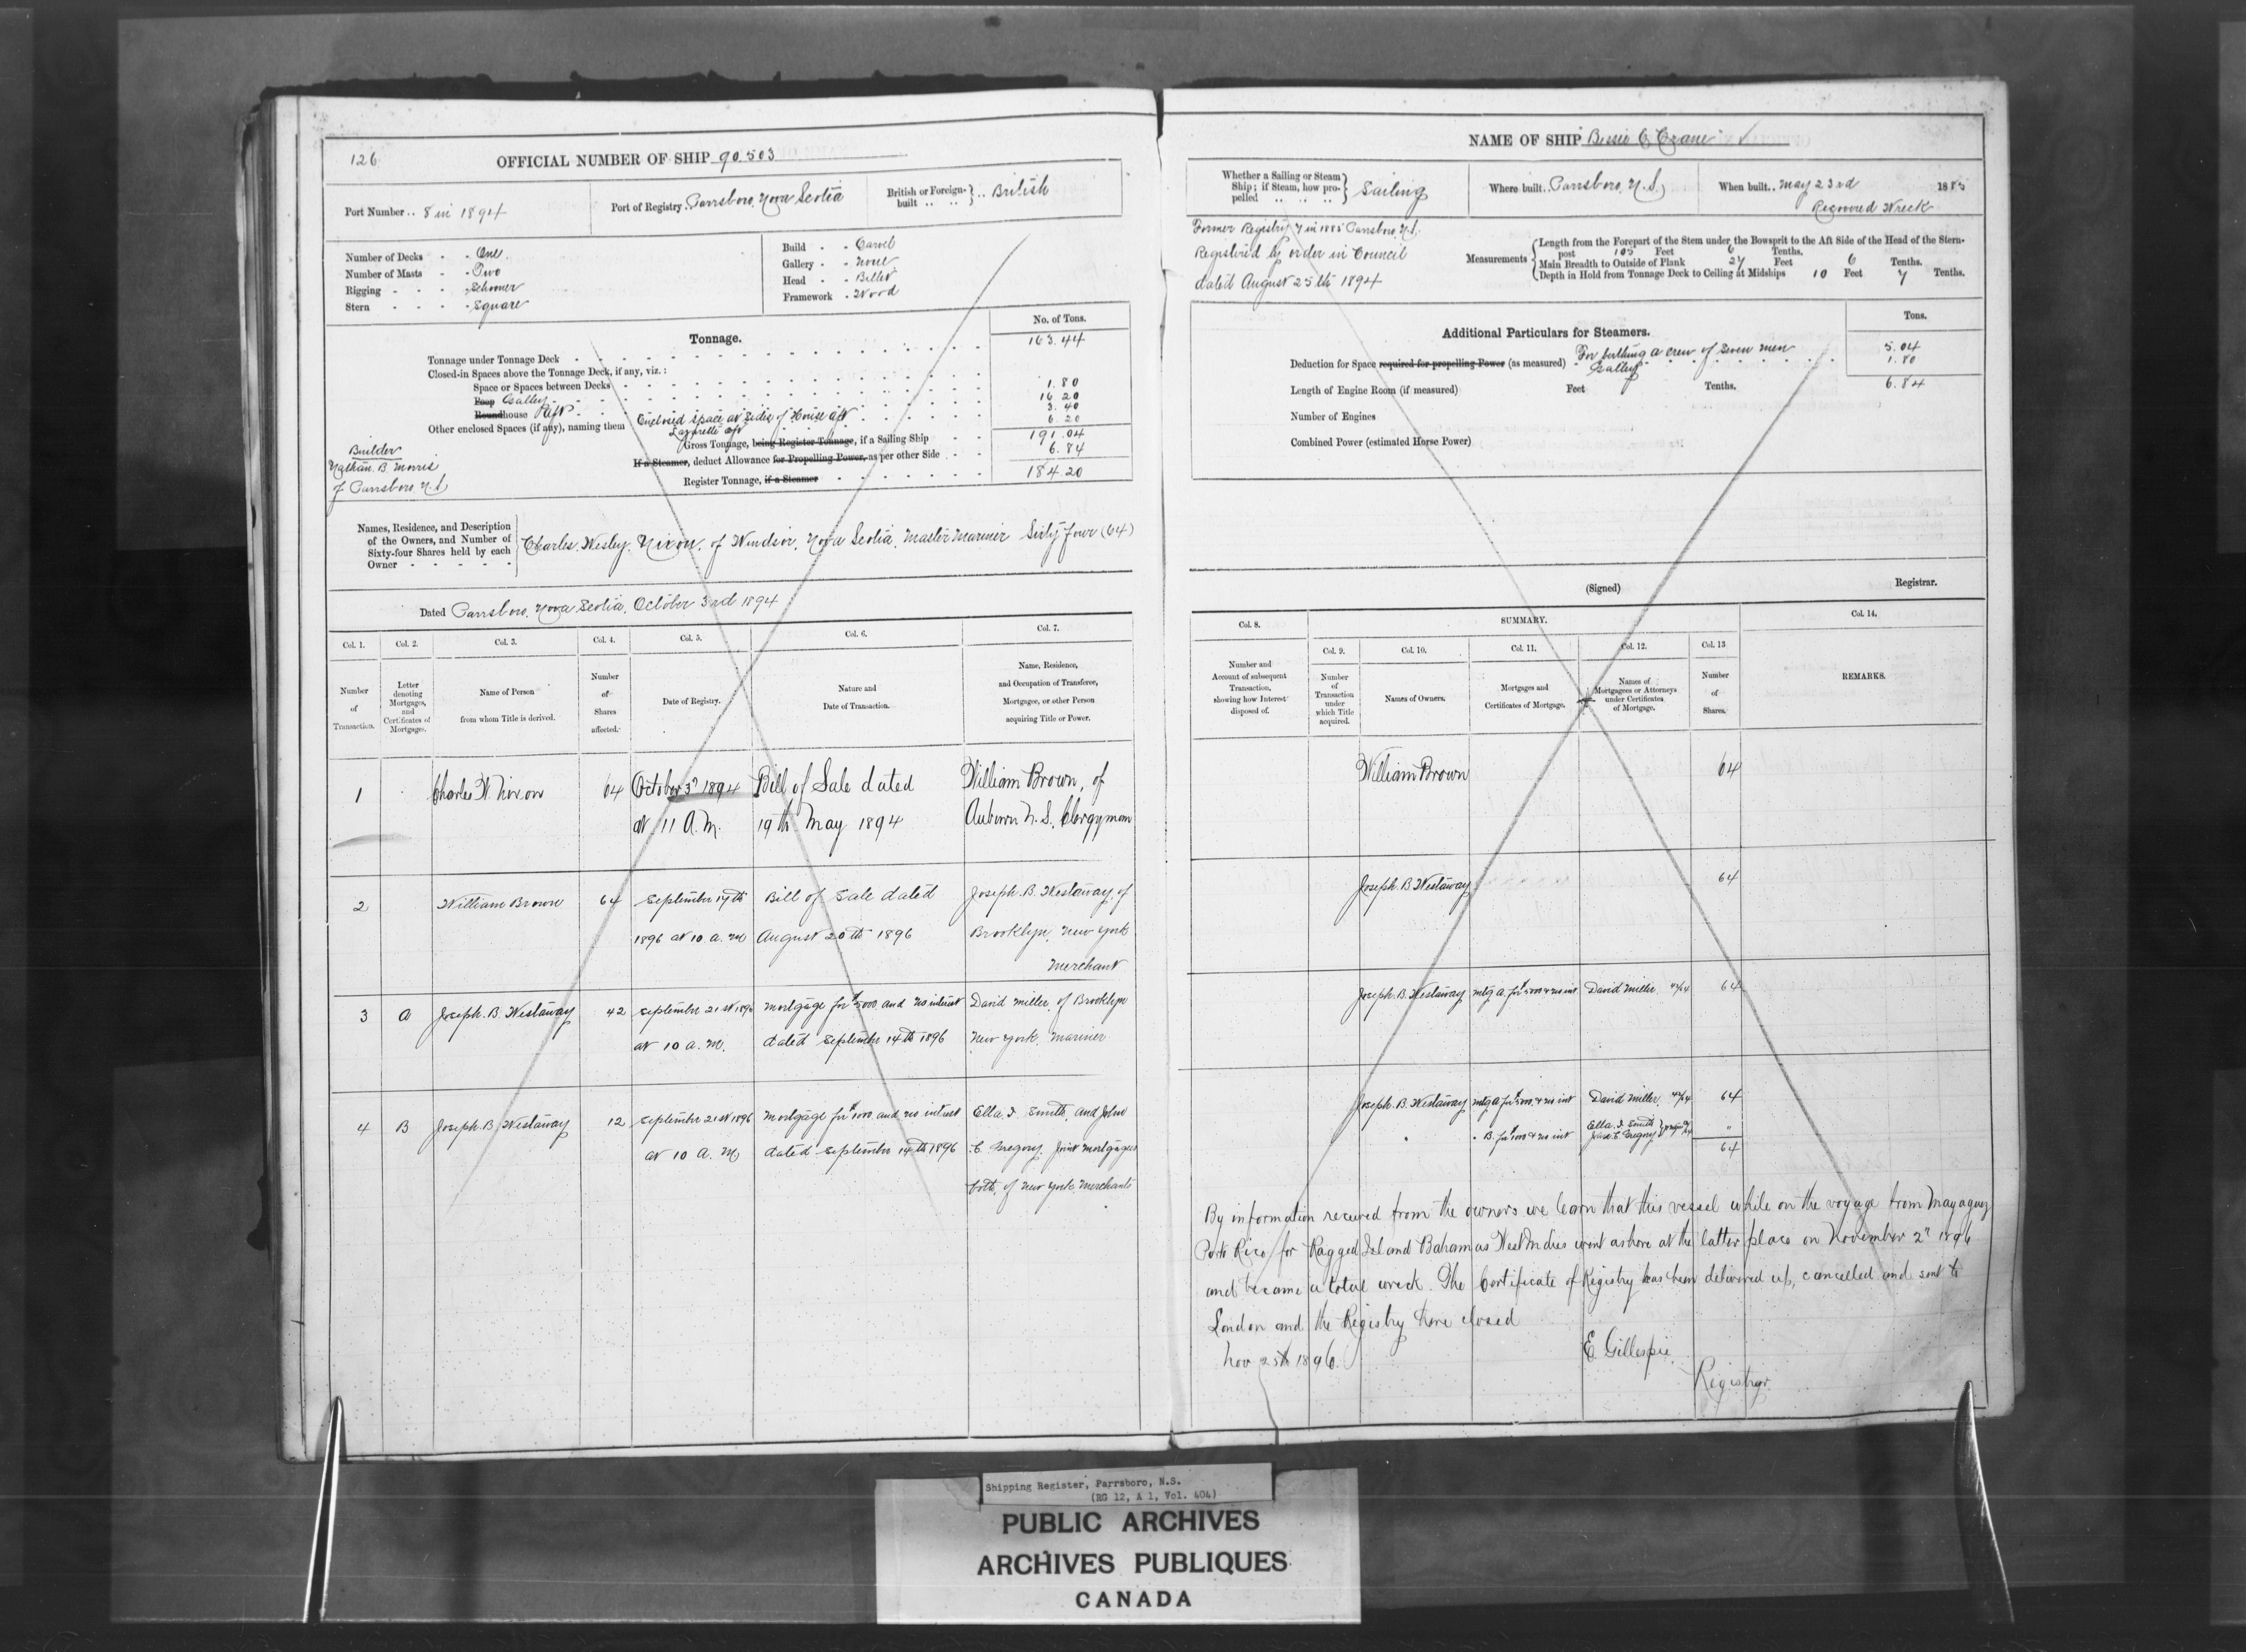 126
OFFICIAL NUMBER OF SHIP 90.503
Port Number .. 8 in 1894
Port of Registry. Parrsboro, Nova Scotia
British or Foreign-built .. .. } .. British
Number of Decks - - One.
Number of Masts - - Two
Rigging - - - - Schooner
Stern - - - - Square
Build - - Carvel
Gallery - - None
Head - - Billet
Framework - Wood
Tonnage.
No. of Tons.
Tonnage under Tonnage Deck 163.44
Closed-in Spaces above the Tonnage Deck, if any, viz.:
Space or Spaces between Decks
Poop Galley 1.80
Roundhouse Aft 16.20
Other enclosed Spaces (if any), naming them Enclosed space at sides of House aft 3.40
Lazarette aft 6.20
Gross Tonnage, being Register Tonnage, if a Sailing Ship 191.04
If a Steamer, deduct Allowance for Propelling Power, as per other Side 6.84
Register Tonnage, if a Steamer 184.20
Builder
Nathan B. Morris
of Parrsboro, N.S.
Names, Residence, and Description of the Owners, and Number of Sixty-four Shares held by each Owner
Charles Wesley Nixon, of Windsor, Nova Scotia, Master Mariner Sixty four (64)
Dated Parrsboro, Nova Scotia, October 3rd 1894
Col. 1. Col. 2. Col. 3. Col. 4. Col. 5. Col. 6. Col. 7.
Number of Transaction.
Letter denoting Mortgages, and Certificates of Mortgage.
Name of Person from whom Title is derived.
Number of Shares affected.
Date of Registry.
Nature and Date of Transaction.
Name, Residence, and Occupation of Transferee, Mortgagee, or other Person acquiring Title or Power.
1 Charles W. Nixon 64 October 3d 1894 Bill of Sale dated William Brown, of
at 11 A.M. 19th May 1894 Auburn N.S. Clergyman
2 William Brown 64 September 17th Bill of Sale dated Joseph. B. Westaway of
1896 at 10 a.m August 20th 1896 Brooklyn, New York
Merchant
3 A Joseph. B. Westaway 42 September 21st 1896 Mortgage for $5000 and no interest David Miller, of Brooklyn
at 10 a.m. dated September 14th 1896 New York. Mariner
4 B Joseph. B. Westaway 12 September 21st 1896 Mortgage for $1000 and no interest Ella I. Smith, and John
at 10 a.m dated September 14th 1896 C. Gregory. Joint Mortgagees
both, of New York, Merchants
NAME OF SHIP "Bessie C. Crane"
Whether a Sailing or Steam Ship; if Steam, how propelled } Sailing
Where built.. Parrsboro, N.S.
When built.. May 23rd 1885
Recovered Wreck
Former Registry 7 in 1885 Parrsboro, N.S.
Registered by order in Council
dated August 25th 1894
Measurements
Length from the Forepart of the Stem under the Bowsprit to the Aft Side of the Head of the Stern-
post 105 Feet 6 Tenths.
Main Breadth to Outside of Plank 27 Feet 6 Tenths.
Depth in Hold from Tonnage Deck to Ceiling at Midships 10 Feet 7 Tenths.
Additional Particulars for Steamers.
Tons.
Deduction for Space required for propelling Power (as measured) For berthing a crew of seven men 5.04
Galley 1.80
6.84
Length of Engine Room (if measured) Feet Tenths.
Number of Engines
Combined Power (estimated Horse Power)
(Signed) Registrar.
Col. 8. SUMMARY. Col. 14.
Col. 9. Col. 10. Col. 11. Col. 12. Col. 13
Number and Account of subsequent Transaction, showing how Interest disposed of.
Number of Transaction under which Title acquired.
Names of Owners.
Mortgages and Certificates of Mortgage.
Names of Mortgagees or Attorneys under Certificates of Mortgage.
Number of Shares.
REMARKS.
William Brown 64
Joseph. B Westaway 64
Joseph. B. Westaway mtg A. for $5000 & no int David Miller 42/64 64
Joseph. B. Westaway mtg A for $5000 & no int David Miller, 42/64 64
" " B. for $1000 & no int Ella I. Smith "
John C. Gregory
64
By information received from the owners we learn that this vessel while on the voyage from Mayaguez
Porto Rico for Ragged Island Bahamas West Indies went ashore at the latter place on November 2d 1896
and became a total wreck. The Certificate of Registry has been delivered up, cancelled and sent to
London and the Registry here closed
Nov 25th 1896.
E. Gillespie
Registrar
Shipping Register, Parrsboro, N.S.
(RG 12, A 1, Vol. 404)
PUBLIC ARCHIVES
ARCHIVES PUBLIQUES
CANADA